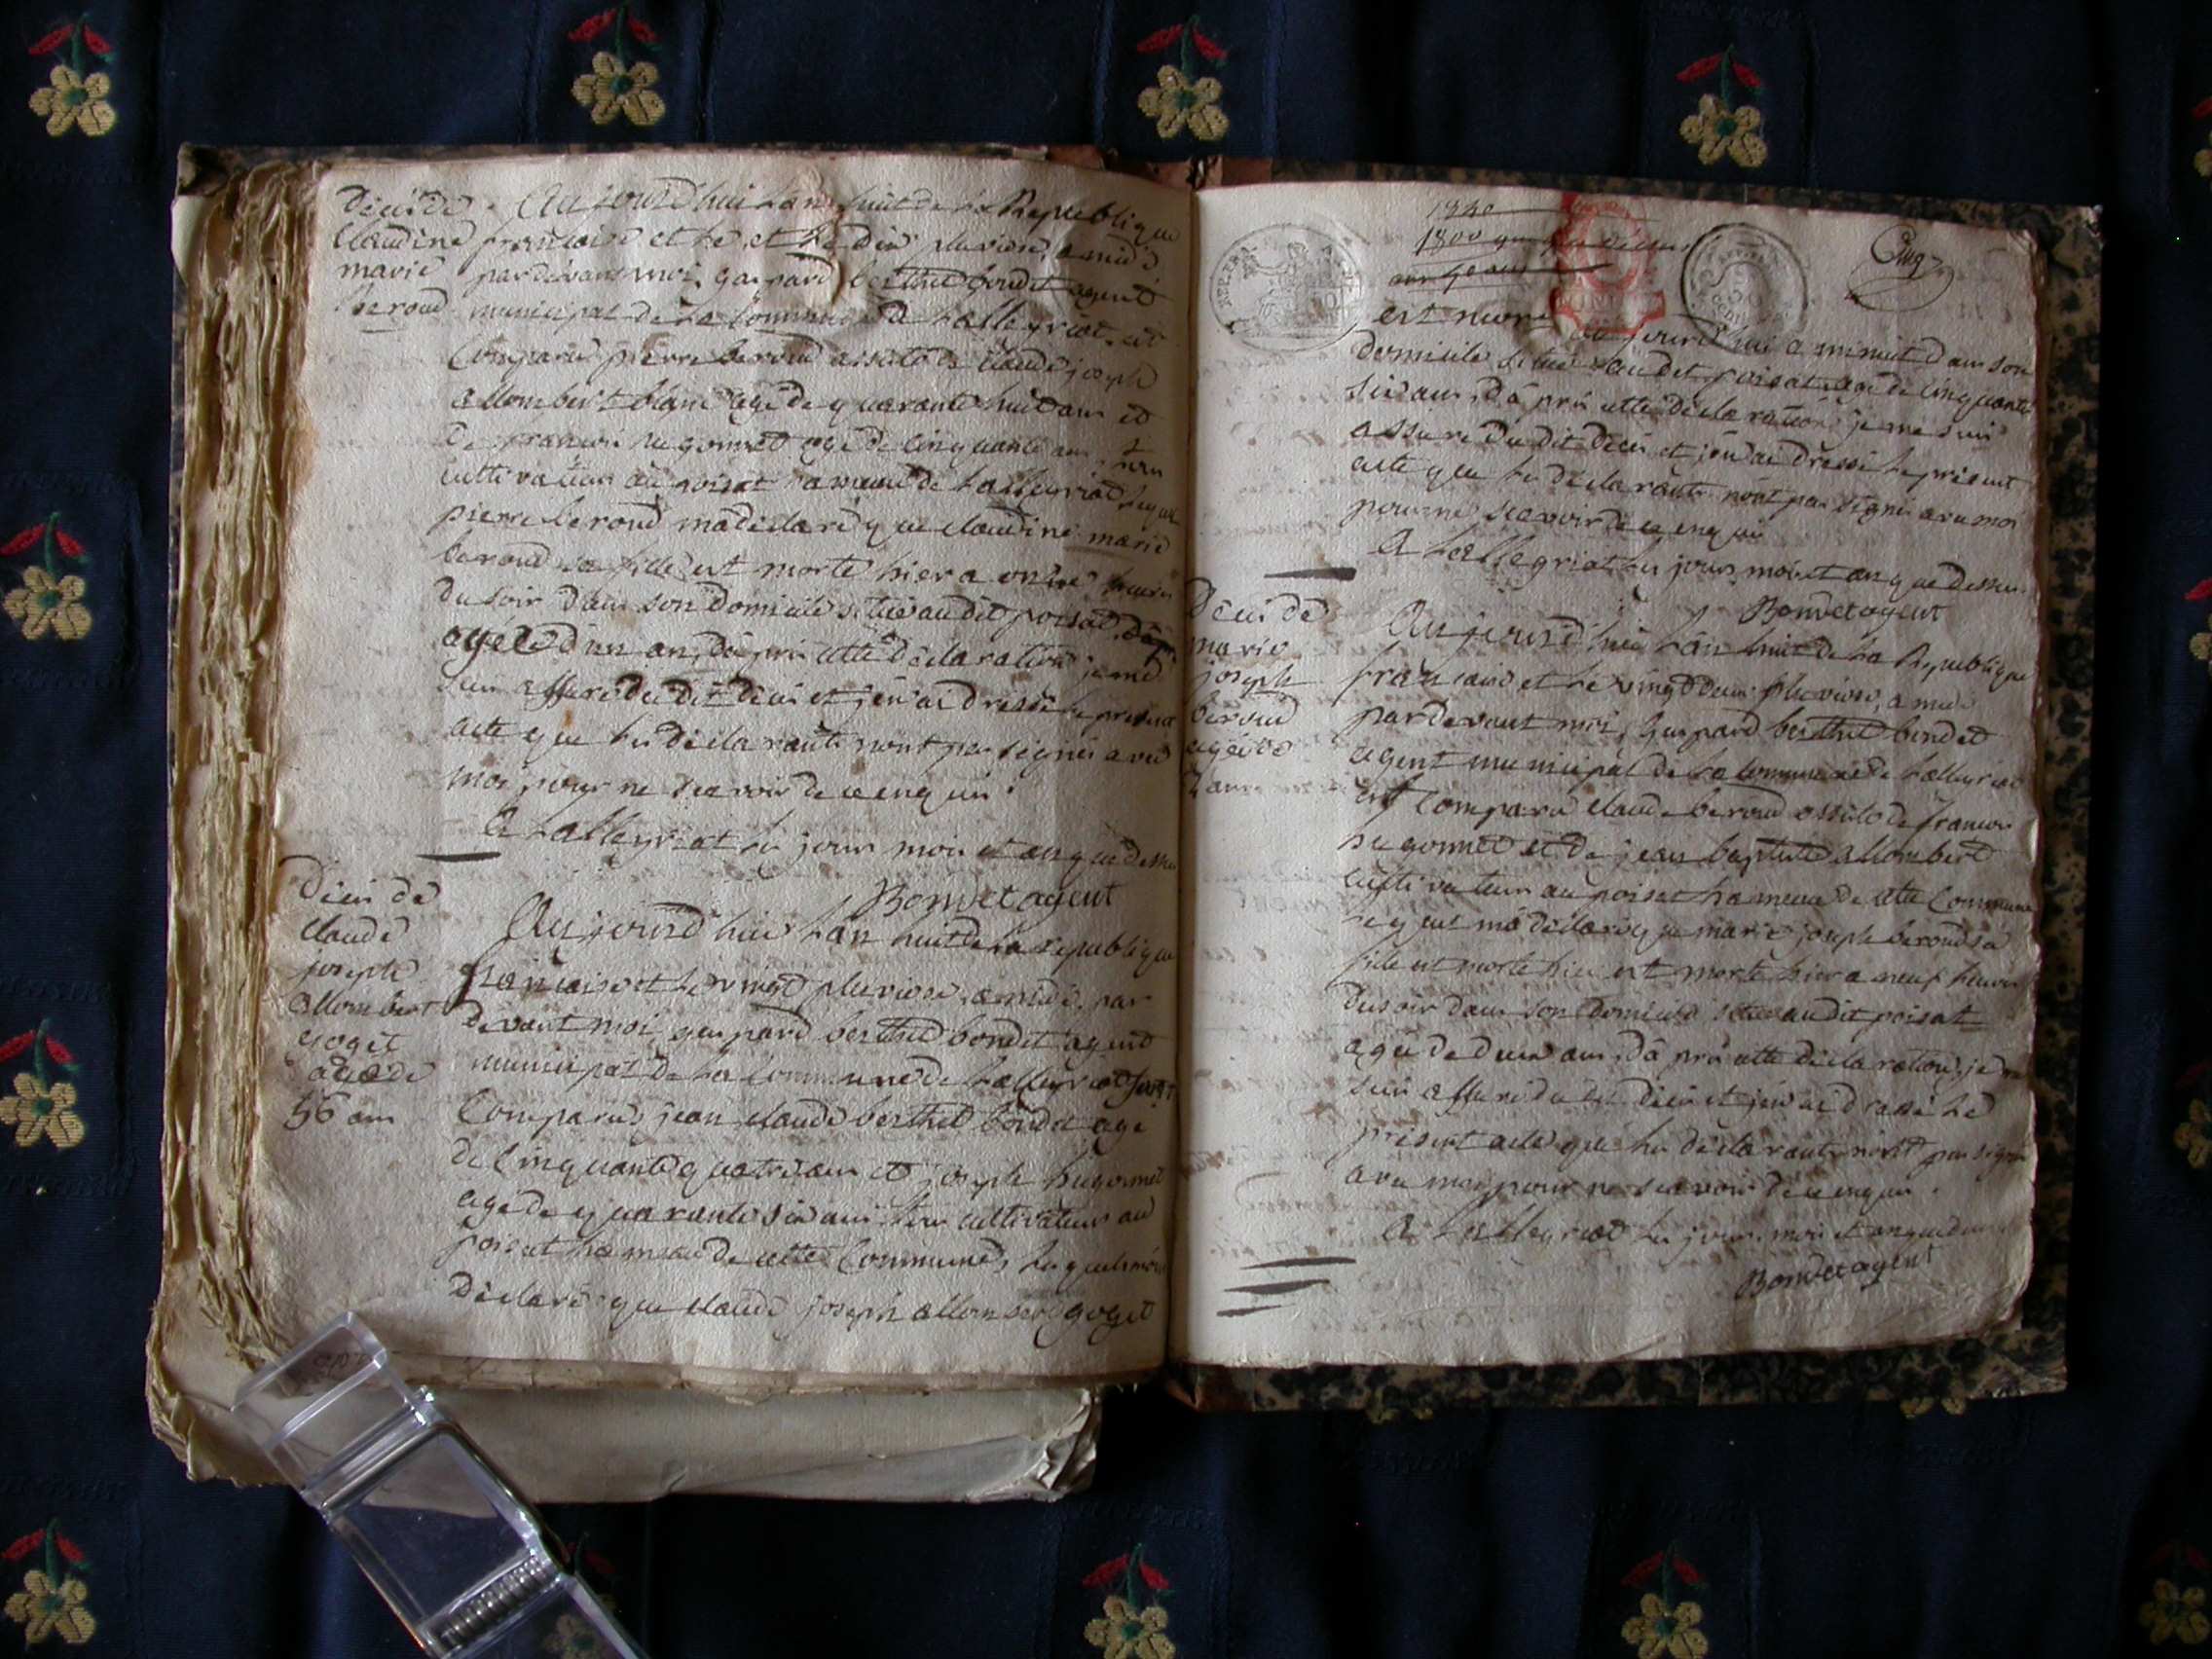 Décés de
Claudine
marie
beroud
Aujourd'hui L'an huit de La Republique
francaise et Le et Le dix pluviose, a midi
pardevant moi, gaspard berthet bondet agent
municipal de La Commune de Lalleyriat, est
Comparu pierre beroud assisté de Claude joseph
allombert blanc agé de quarante huit ans et
de francois hugonnet agé de cinquante ans tous
cultivateurs au poisat hameau de Lalleyriat Lequel
pierre beroud ma déclaré que claudine marie
beroud sa fille est morte hier a onze heures
du soir dans son Domicile situé audit poisat,
agée d'un an, dà prés cette déclaration je me
suis assuré du dit décés et jén ai dressé Le présent
acte que Les déclarants nont pas signés avec
moi pour ne scavoir de ce enquis.
A Lalleyriat Les jour mois et an que dessus
Bondet agent
Décés de
Claude
joseph
allombert
goget
agé de
56 ans
Aujourd'hui L'an huit de La republique
francaise et Le vingt pluviose, a midi, par
devant moi gaspard berthet bondet agent
municipal de La Commune de Lalleyriat sont
Comparus jean claude berthet bondet agé
de cinquante quatre ans et joseph hugonnet
agé de quarante six ans tous cultivateurs au
poisat hameau de cette Commune, Lesquels mónt
déclaré que claude joseph allombert goget
1840
1800
Cinq
est mort au jourd'hui a minuit dans son
domicile situé audit poisat, agé de cinquante
six ans, dà prés cette déclaration je me suis
assuré du dit décés et jén ai dressé Le présent
acte que Les déclarants nónt pas signés avec moi
pour ne scavoir de ce enquis
A Lalleyriat Les jour, mois et an que dessus.
Bondet agent
Décés de
marie
joseph
beroud
agée de
2 ans
Aujourd'hui L'an huit de La Republique
francaise et Le vingt deux pluviose, a midi
pardevant moi, Gaspard berthet bondet
agent municipal de La Commune de Lalleyriat
est Comparu claude beroud assisté de francois
hugonnet et de jean baptiste allombert
cultivateurs au poisat hameau de cette Commune
Lequel má déclaré que marie joseph beroud sa
fille est morte hier est morte hier a neuf heures
du soir dans son domicile situé audit poisat
agée de deux ans, dà prés cette déclaration, je me
suis assuré du dit décés et jén ai dressé Le
présent acte que Les déclarants nónt pas signé
avec moi pour ne scavoir de ce enquis.
A Lalleyriat Les jour, mois et an que dessus
Bondet agent